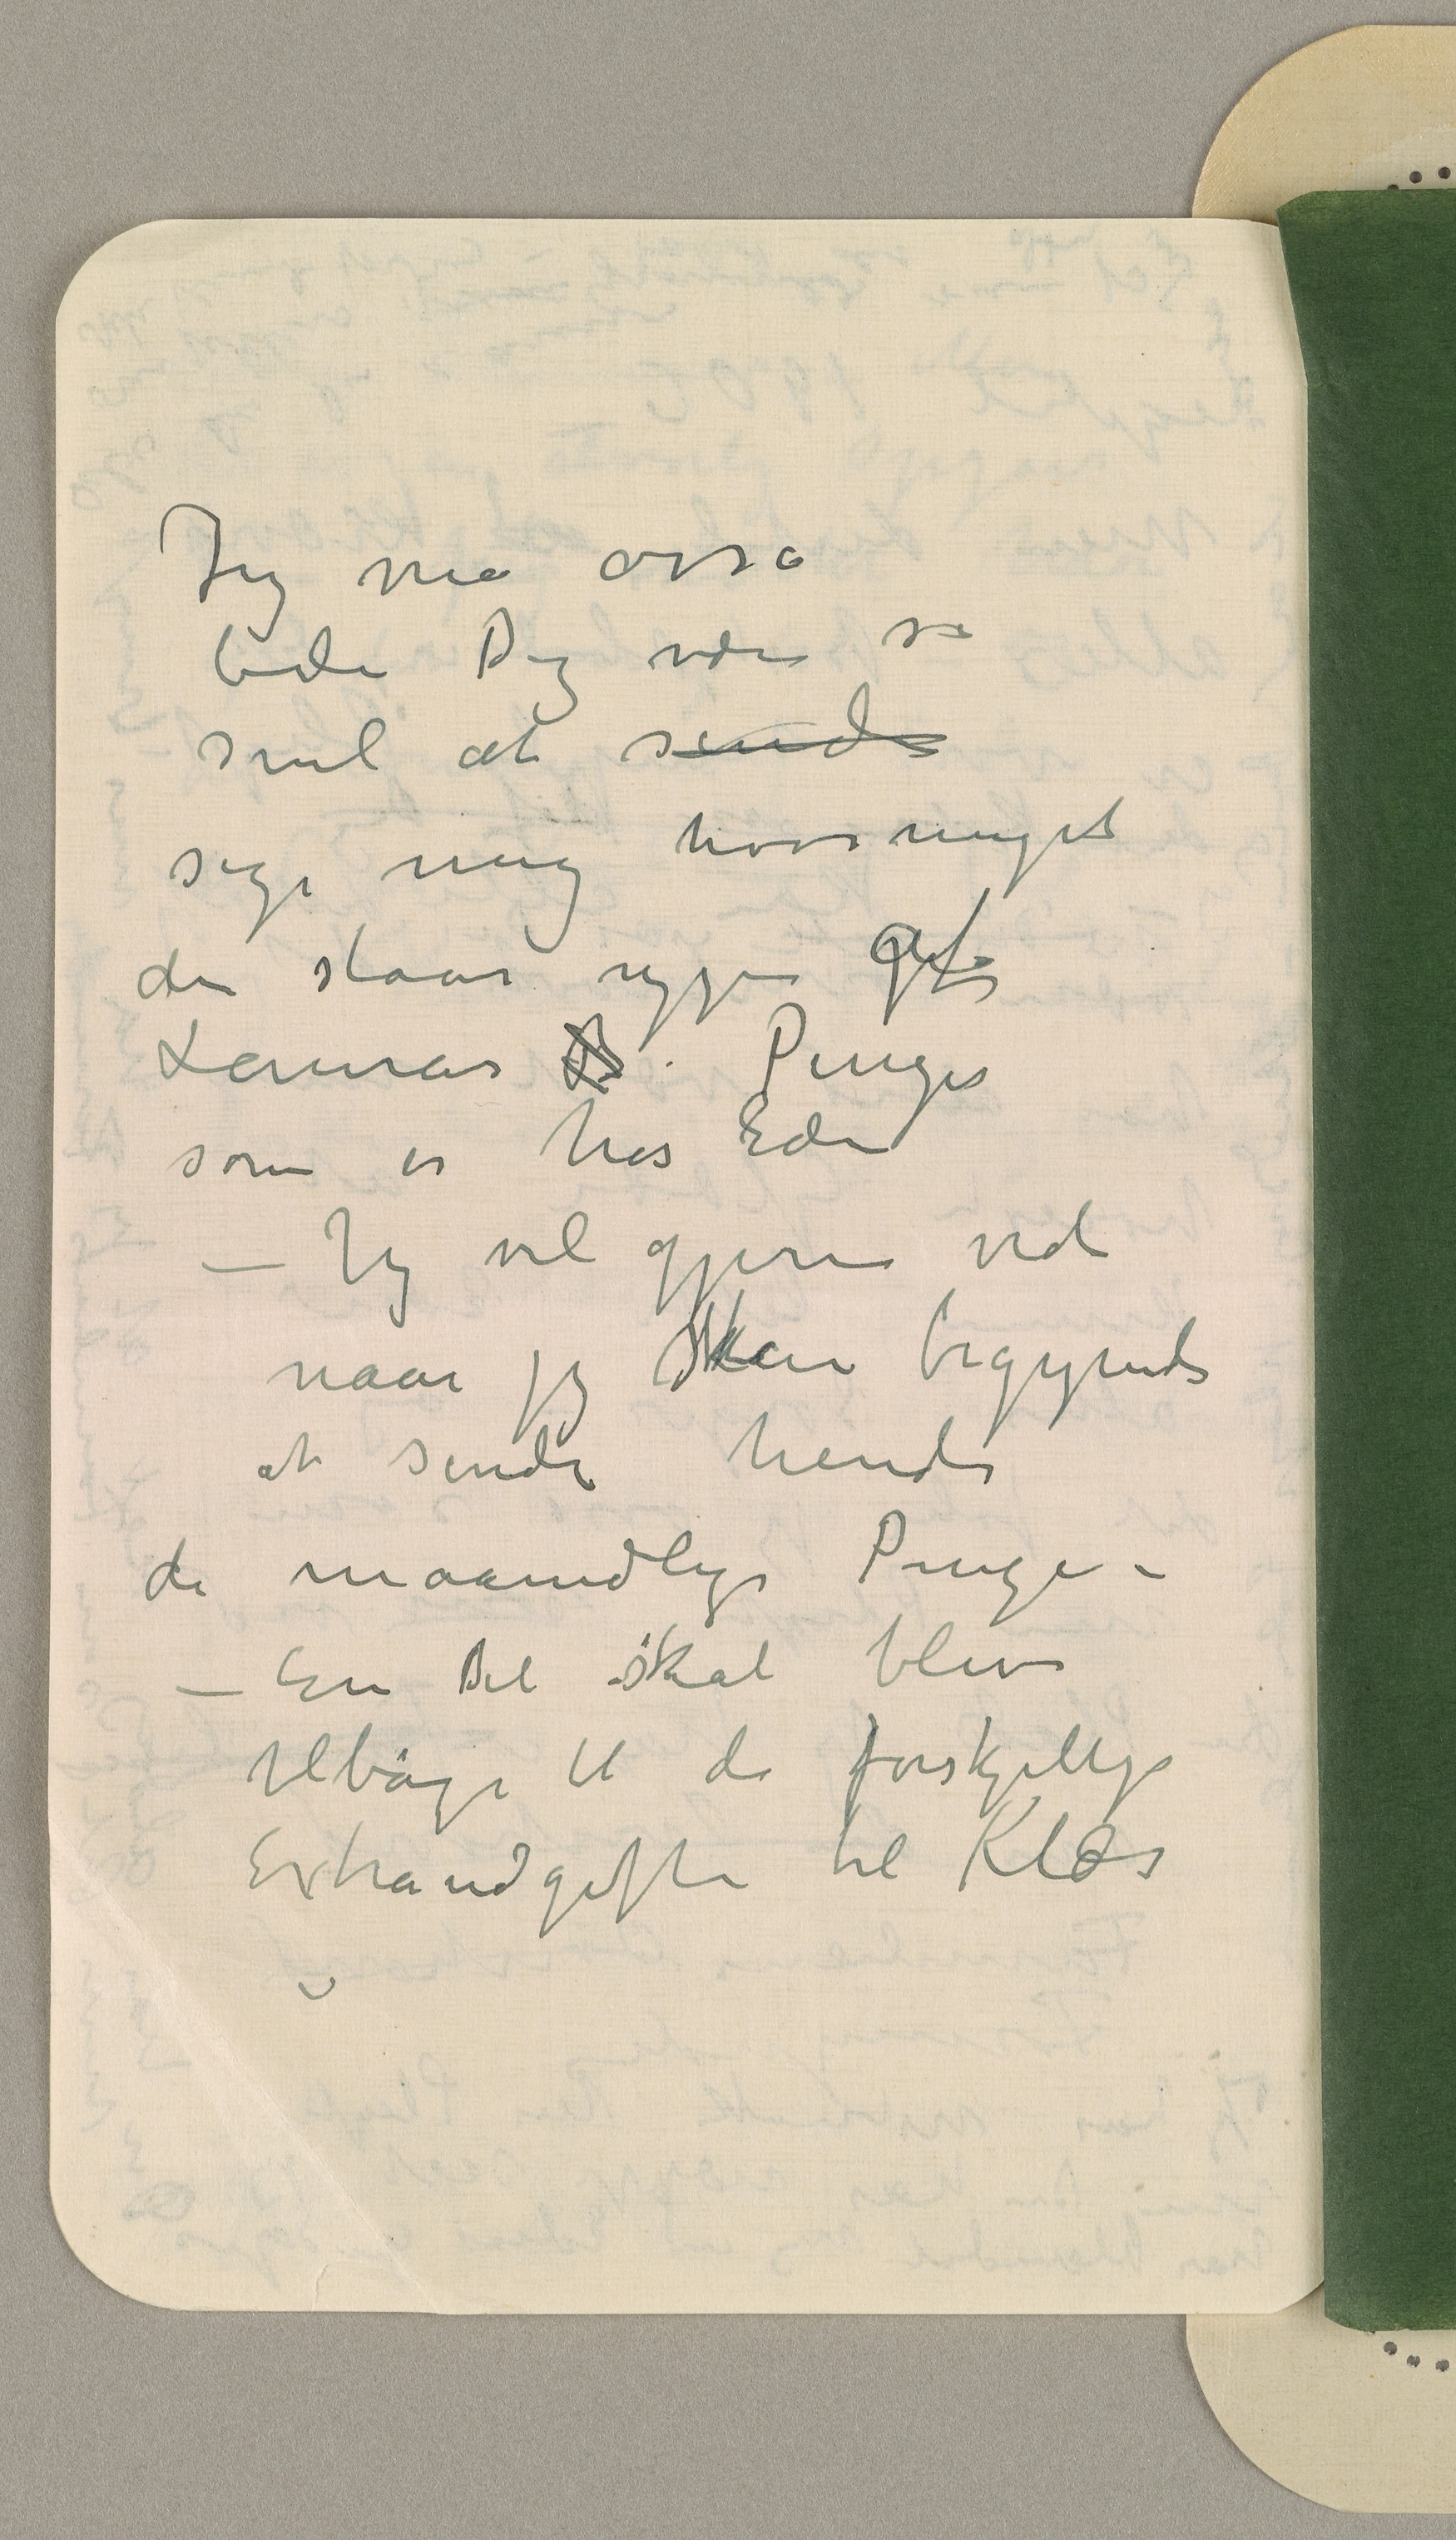 Jeg må også
bede Dig være så
snil at sende
sige meig hvormeget
der staar igjen af
Lauras Penge
som er hos Eder
— Jeg vil gjerne vide
naar jeg skan begynde
at sende hende
de maanedlige Penge –
— En Del skal blive
tilbage til de forskjellige
Extraudgifter til Klær